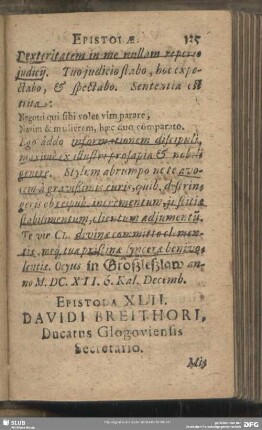 EPISTOLÆ. 325
Dexteritatem in me nullam reperio
judicij. Tuo judicio stabo, hoc expe-
ctabo, & spectabo. Sententia est
Negotî qui sibi volet vim parare,
Navim & mulierem, hæc duo comparato.
Ego addo informationem discipuli,
maximè ex illustri prosapia & nobili
genere. Stylem abrumpo ne te avo-
cem à gravissimis curis, quib. distrin-
geris ob reipub. incrementum, justitiæ
stabilimentum, clientum adjumentū.
Te vir CL. divinæ committo clemen-
tiæ, meq; tuæ pristinæ synceræ benivo-
lentiæ. Ocyus in Großleßlaw an-
no M. DC. XII. 6. Kal. Decemb.
EPISTOLA XLII.
DAVIDI BREITHORI,
Ducatus Glogoviensis
Secretario.
Mis
SLUB
DFG